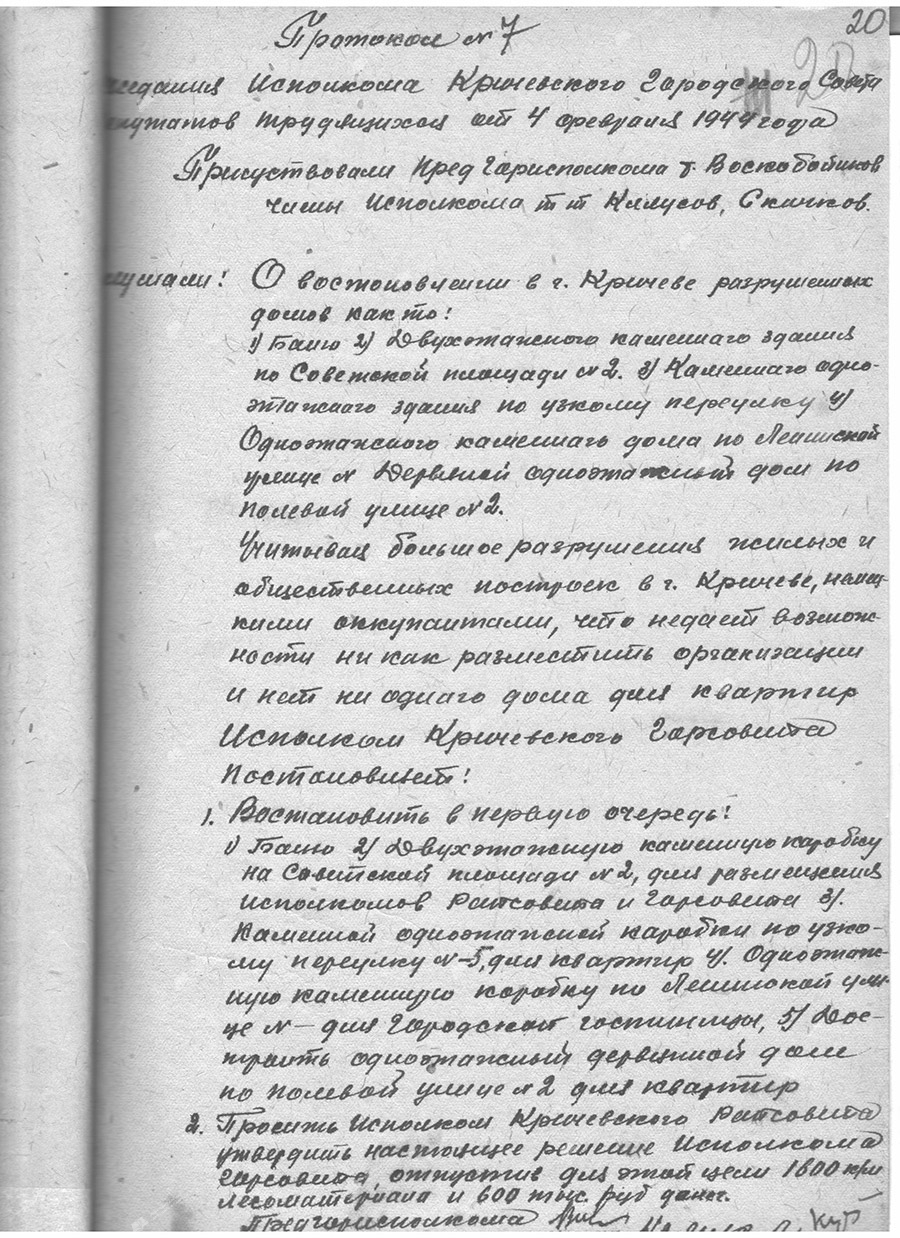 20
Протокол № 7
20
седания Исполкома Кричевского Городского Совета
епутатов трудящихся от 4 февраля 1944 года
Присуствовали Пред Горисполкома т. Воскобойников
члены Исполкома т т Клягусов, Скачков.
лушали: О востоновлении в г. Кричеве разрушенных
домов как то:
1) Баню 2) Двухэтажного каменнаго здания
по Советской площади № 2. 3) Каменнаго одно-
этажнаго здания по узкому переулку 4)
Одноэтажного каменнаго дома по Ленинской
улице № Деревяной одноэтажный дом по
Полевой улице № 2.
Учитывая большое разрушения жилых и
общественных построек в г. Кричеве, немец-
кими оккупантами, что недает возмож-
ности ни как разместить организации
и нет ни однаго дома для квартир
Исполком Кричевского Горсовета
Постановляет:
1. Востановить в первую очередь:
1) Баню 2) Двухэтажную каменную коробку
на Советской площади № 2, для размещения
исполкомов Райсовета и Горсовета 3).
Каменной одноэтажной коробки по узко-
му переулку № -5, для квартир 4). Одноэтаж-
ную каменную коробку по Ленинской ули-
це № - для городской гостиницы, 5) Дос-
троить одноэтажный деревяной дом
по полевой улице № 2 для квартир
2. Просить Исполком Кричевского Райсовета
утвердить настоящее решение Исполкома
Горсовета, отпустив для этой цели 1600 к/м
лесоматериала и 600 тыс. руб денег.
Предгорисполкома